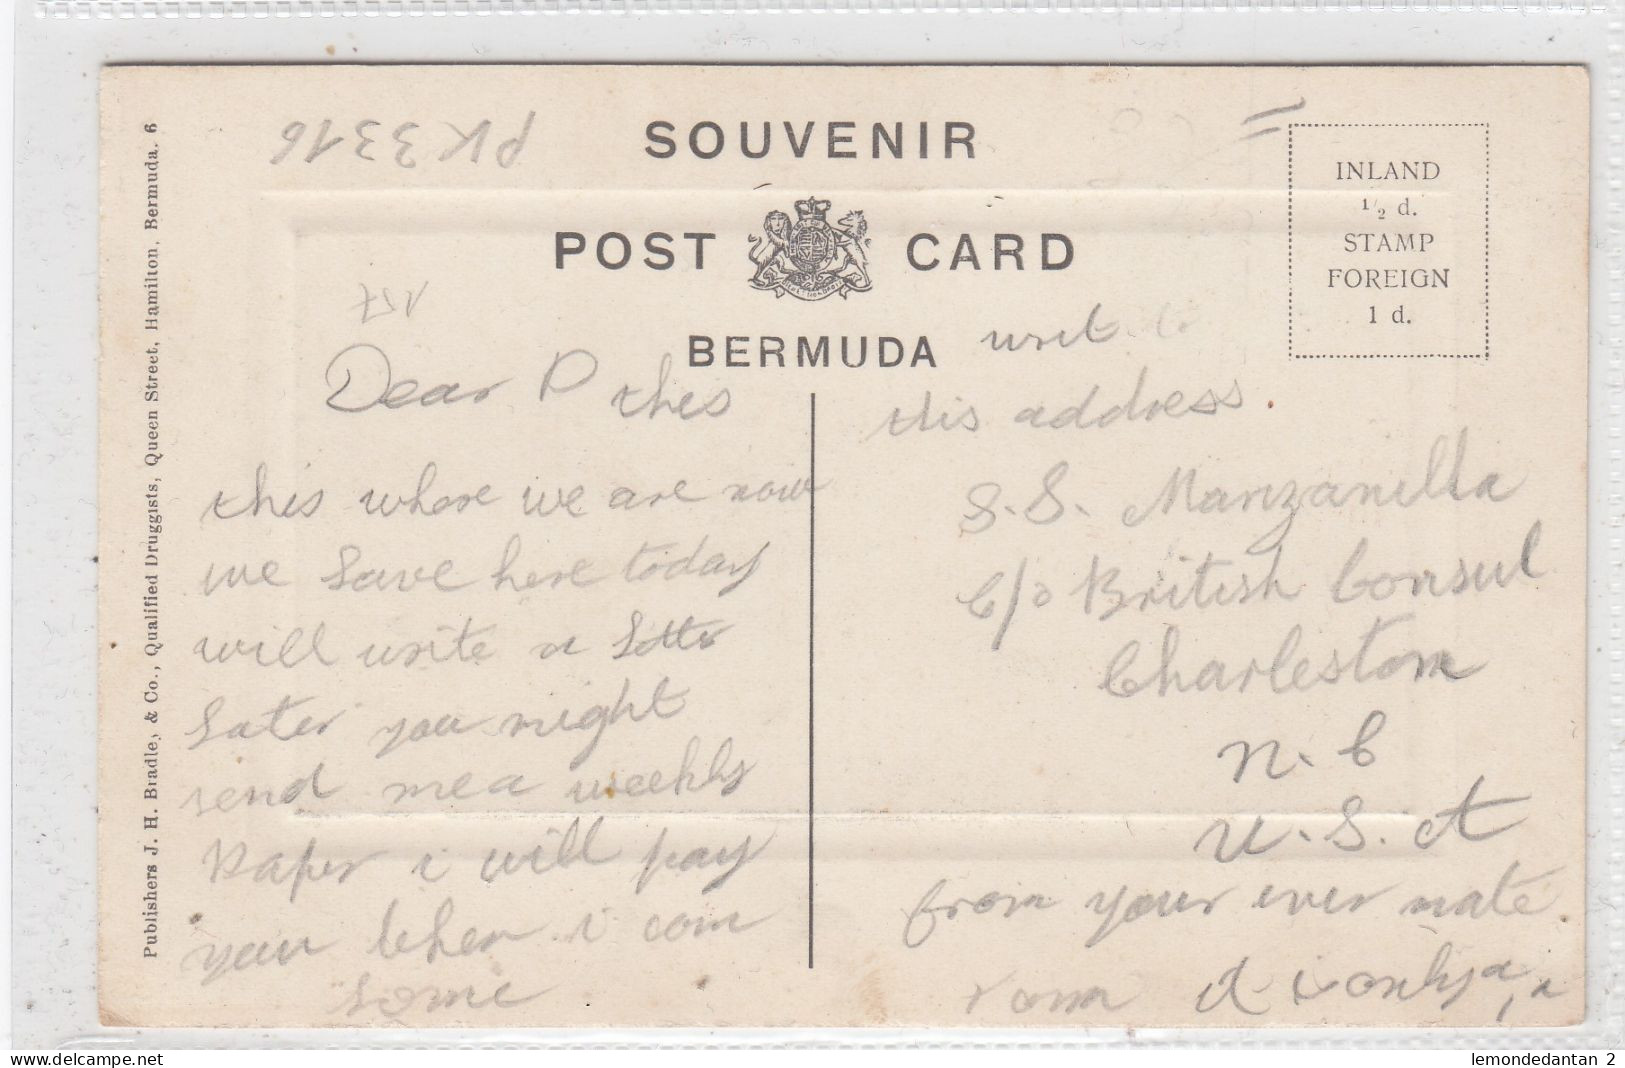 PK 3316
SOUVENIR
POST CARD
BERMUDA
INLAND
1/2 d.
STAMP
FOREIGN
1 d.
Publishers J. H. Bradle, & Co., Qualified Druggists, Queen Street, Hamilton, Bermuda. 6
Dear P thes
this whore we are now
we Save here today
will write a Letter
Later you might
send me a weekly
Paper i will pay
you When i com
write
this address.
S.S. Manzanilla
C/o British Consul
Charleston
N. C
U. S. A
from your ever mate
lemondedantan 2